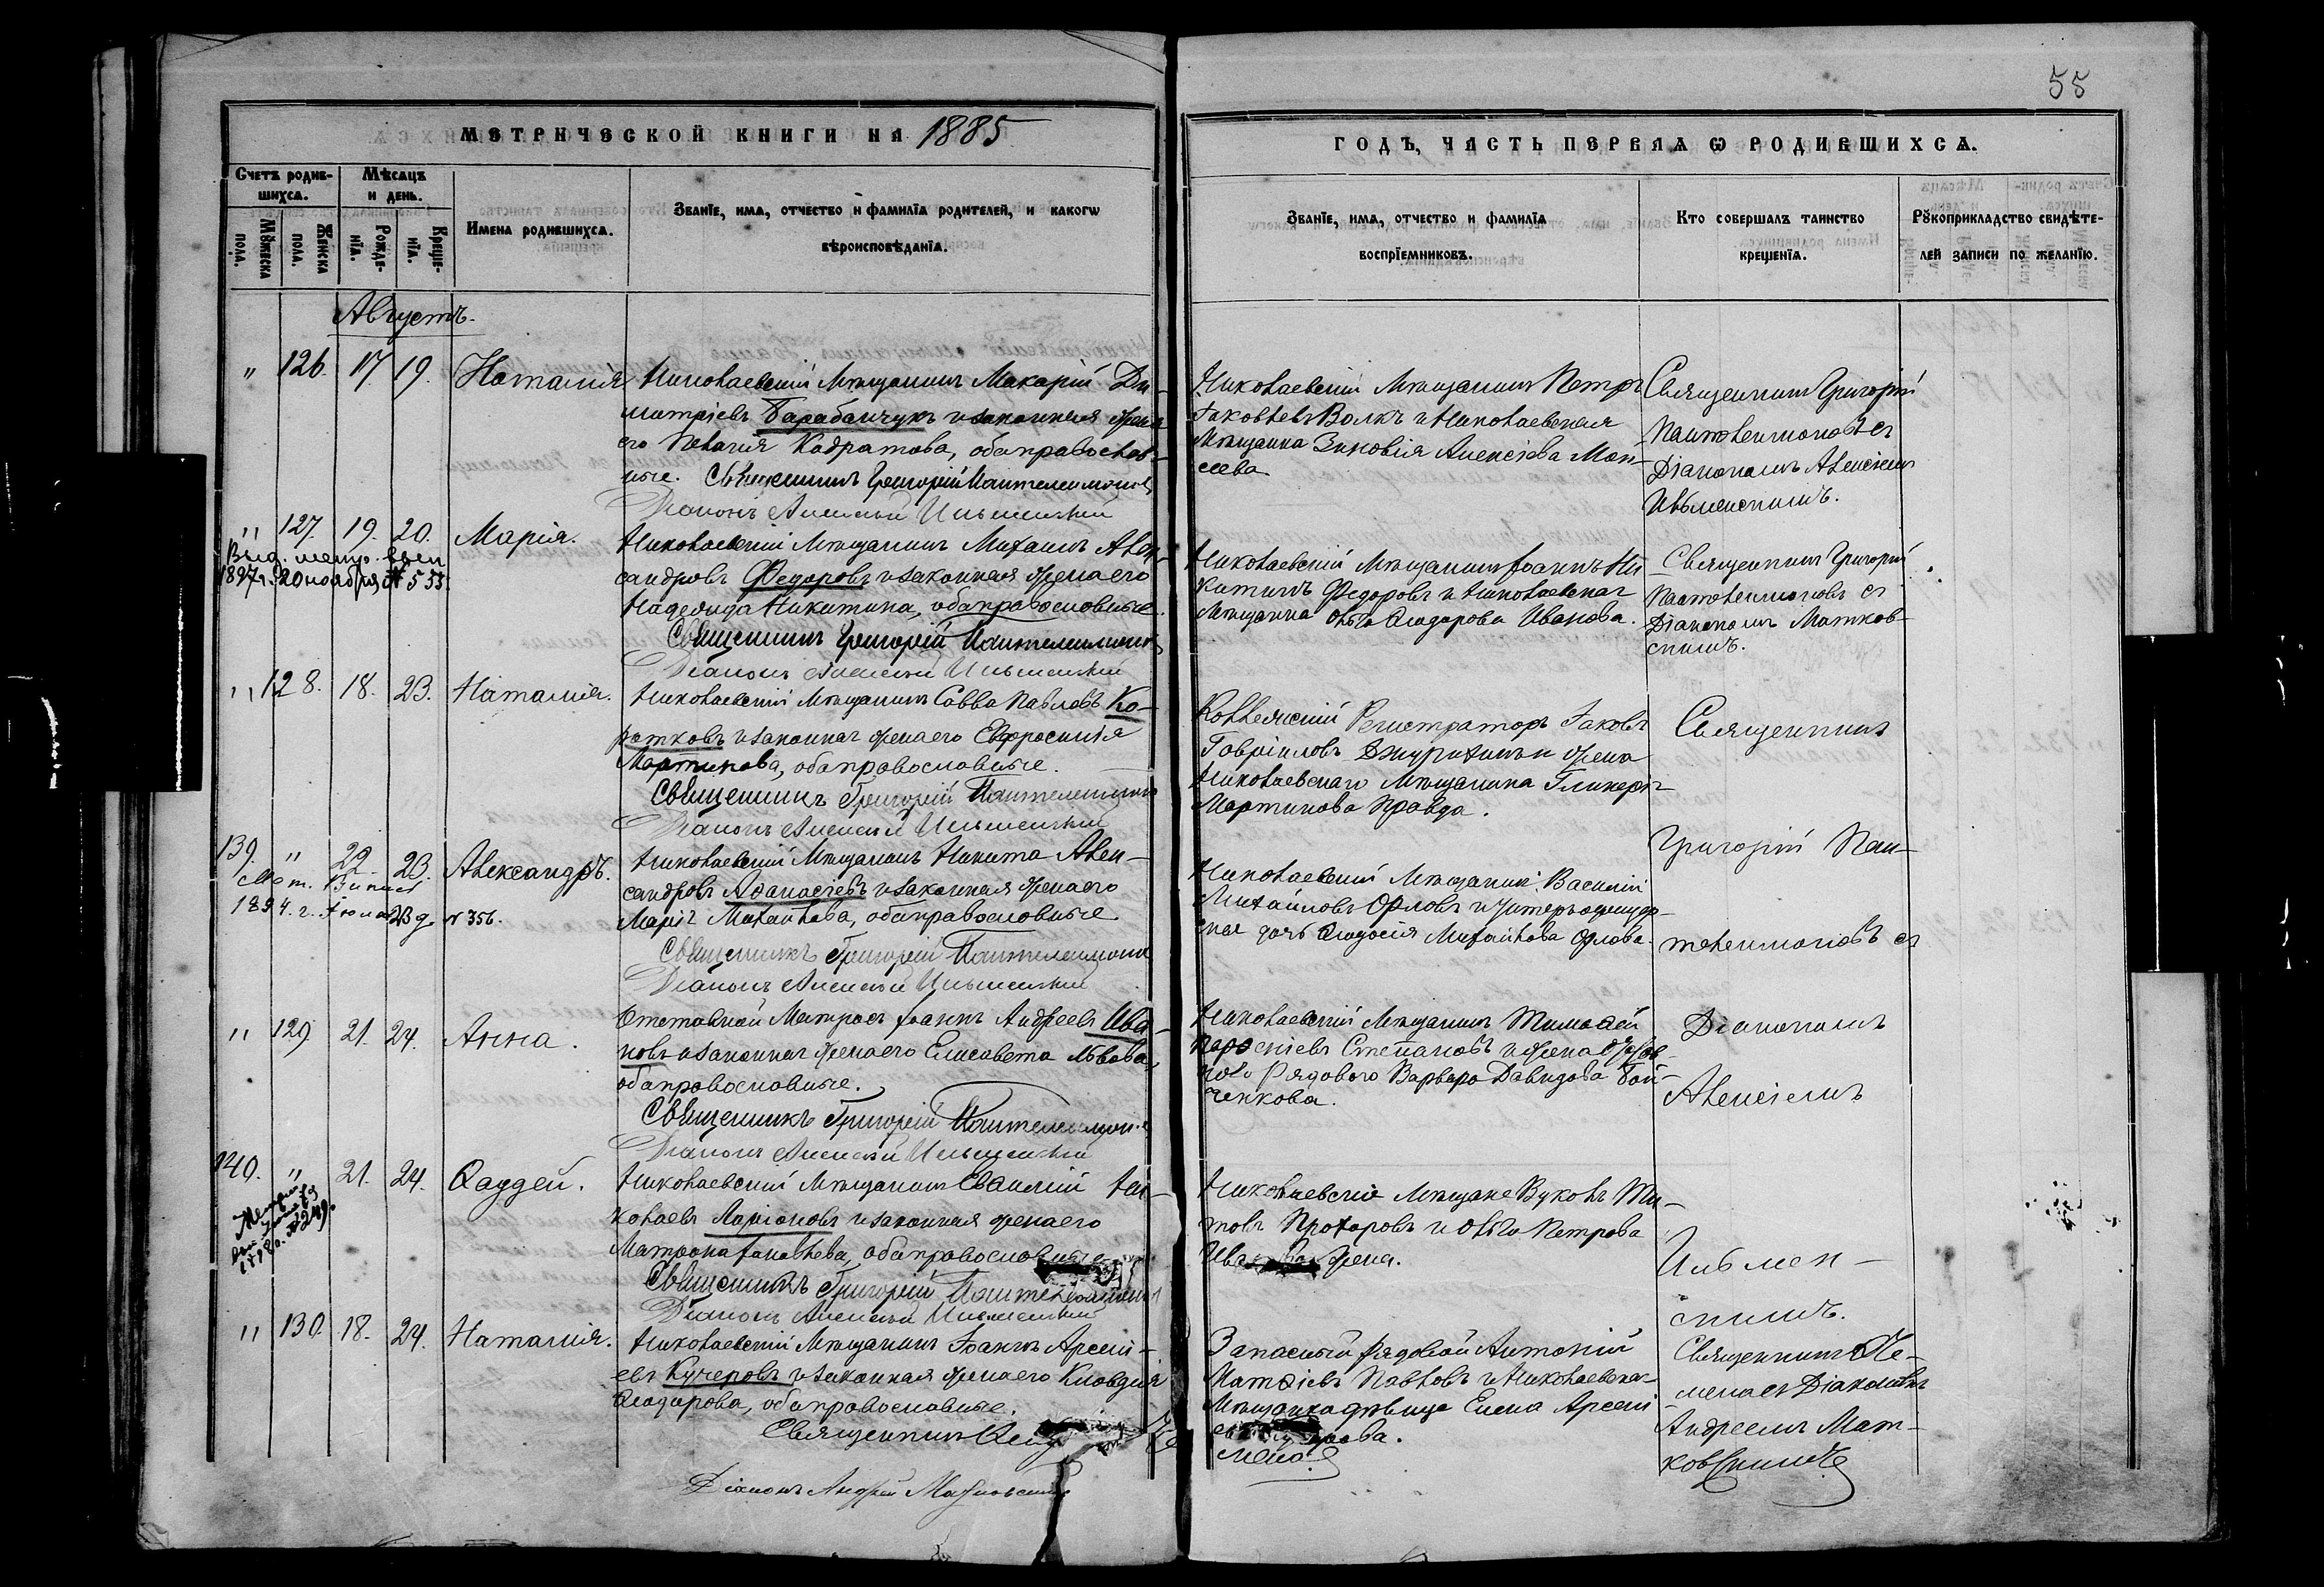 55
МЕТРИЧЕСКОЙ КНИГИ НА 1885
ГОДЪ, ЧАСТЬ ПЕРВАѦ Ѡ РОДИВШИХСѦ.
Счетъ родив-
шихсѧ.
Мѣсѧцъ
и день.
Мꙋжеска
пола.
Женска
пола.
Рожде-
нїѧ.
Креще-
нїѧ.
Имена родившихсѧ.
Званїе, имѧ, отчество и фамилїѧ родителей, и какогѡ
вѣроисповѣданїѧ.
Званїе, имѧ, отчество и фамилїѧ
воспрїемниковъ.
Кто совершалъ таинство
крещенїѧ.
Рꙋкоприкладство свидѣте-
лей записи по желанїю.
Августъ.
" 126. 17. 19. Наталія
Николаевскій Мѣщанинъ Макарій Ди-
митріевъ Барабанчукъ и законная жена
его Пелагія Кодратова, оба православ-
ные. Священникъ Григорій Пантелеимоновъ
Діаконъ Алексѣй Ильменскій
Николаевскій Мѣщанинъ Петръ
Іаковлевъ Волкъ и Николаевская
Мѣщанка Зиновія Алексіева Мои-
сеева
Священникъ Григорій
Пантелеимоновъ съ
Діакономъ Алексіемъ
Ильменскимъ.
" 127. 19. 20. Марія.
Выд. метр. вып.
1897 г. 20 ноября № 555.
Николаевскій Мѣщанинъ Михаилъ Алек-
сандровъ Федоровъ и законная жена его
Надежда Никитина, оба православные.
Священникъ Григорій Пантелеимоновъ
Діаконъ Алексѣй Ильменскій
Николаевскій Мѣщанинъ Іоаннъ Ни-
китинъ Федоровъ и Николаевская
Мѣщанка Ольга Ѳеодорова Иванова.
Священникъ Григорій
Пантелеимоновъ съ
Діакономъ Матков-
скимъ.
" 128. 18. 23. Наталія.
Николаевскій Мѣщанинъ Савва Павловъ Ко-
ротковъ и законная жена его Евфросинія
Мартинова, оба православные.
Священникъ Григорій Пантелеимоновъ
Діаконъ Алексѣй Ильменскій
Коллежскій Регистраторъ Іаковъ
Гавріиловъ и жена
Николаевскаго Мѣщанина Гликерія
Мартинова Правда.
Священникъ
139. " 22. 23. Александръ.
Мет. Выпись
1894. г. Іюня 23 д. № 356.
Николаевскій Мѣщанинъ Никита Алек-
сандровъ Аѳанасіевъ и законная жена его
Марія Михайлова, оба православные
Священникъ Григорій Пантелеимоновъ
Діаконъ Алексѣй Ильменскій
Николаевскій Мѣщанинъ Василій
Михайловъ Орловъ и Унтеръ-офицер-
ская дочь Ѳеодосія Михайлова Орлова.
Григорій Пан-
телеимоновъ съ
" 129. 21. 24. Анна.
Отставной Матросъ Іоаннъ Андреевъ Ива-
новъ и законная жена его Елисавета Львова,
оба православные.
Священникъ Григорій Пантелеимоновъ
Діаконъ Алексѣй Ильменскій
Николаевскій Мѣщанинъ Тимоѳей
Парѳеніевъ Степановъ и жена
Рядового Варвара Давидова Бой-
ченкова.
Діакономъ
Алексіемъ
140. " 21. 24. Ѳаддей.
№ 249.
Николаевскій Мѣщанинъ Евѳимій Ни-
колаевъ Ларіоновъ и законная жена его
Матрона Іаковлева, оба православные
Священникъ Григорій Пантелеимоновъ
Діаконъ Алексѣй Ильменскій
Николаевскіе Мѣщане Вуколъ Ти-
товъ Прохоровъ и Ольга Петрова
жена.
Ильмен-
скимъ.
" 130. 18. 24. Наталія.
Николаевскій Мѣщанинъ Іоаннъ Арсені-
евъ Кучеровъ и законная жена его Клавдія
Ѳеодорова, оба православные.
Священникъ
Діаконъ Андрей Матковскій
Запасный рядовой Антоній
Матѳіевъ Павловъ и Николаевская
Мѣщанка дѣвица Елена Арсені-
Священникъ Че-
мена съ Діакономъ
Андреемъ Мат-
ковскимъ